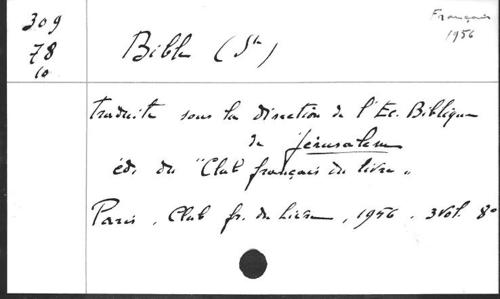 309
78
10
Français
1956
Bible (Ste)
traduite sous la direction de l'Ec. Biblique
de Jérusalem
éd. du "Club français du livre"
Paris, Club fr. du Livre, 1956. 3 vol. 8°